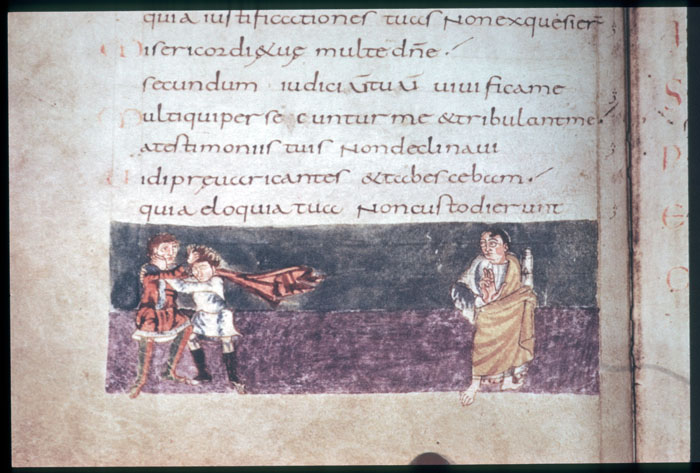 quia iustificationes tuas Nonexquesier̄
Misericordię tuę multe dn̄e
secundum iudiciū tuū uiuificame
Multiquipersecunturme &tribulantme.
atestimoniis tuis Nondeclinaui
Uidipreuaricantes &tabescebam.
quia eloquia tua Noncustodierunt